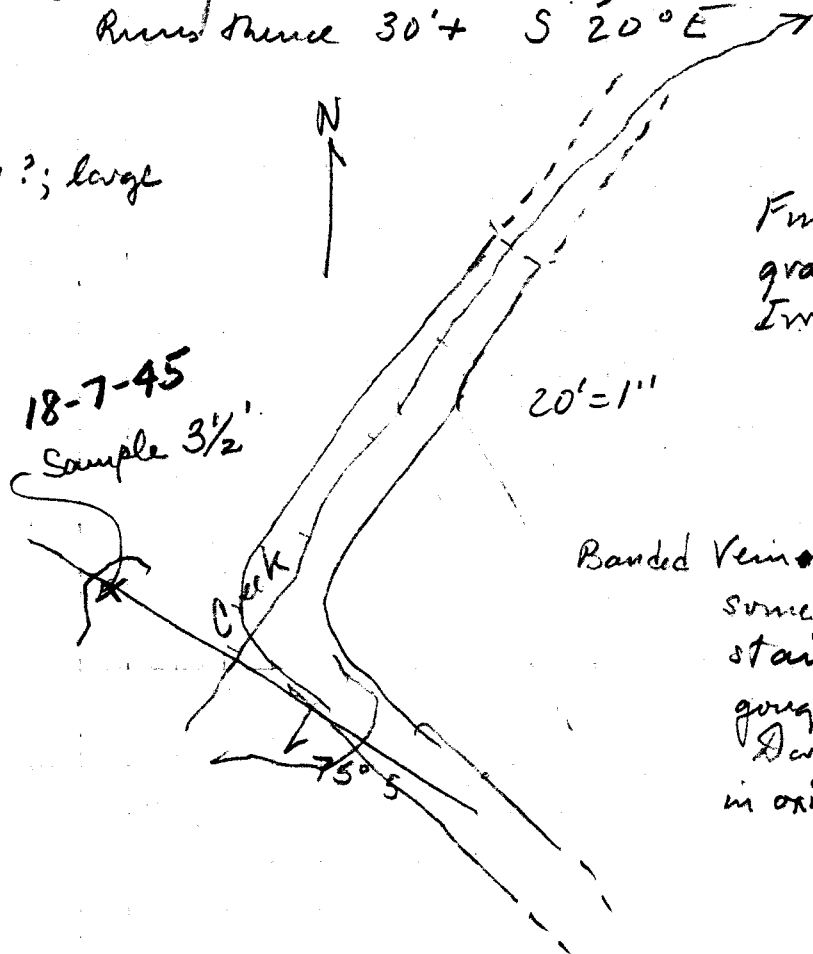 Runs thence 30'+ S 20° E
N
?; large
20'=1"
18-7-45
Sample 3½'
Creek
75° S
Banded Vein
some
stai
goug
in oxi